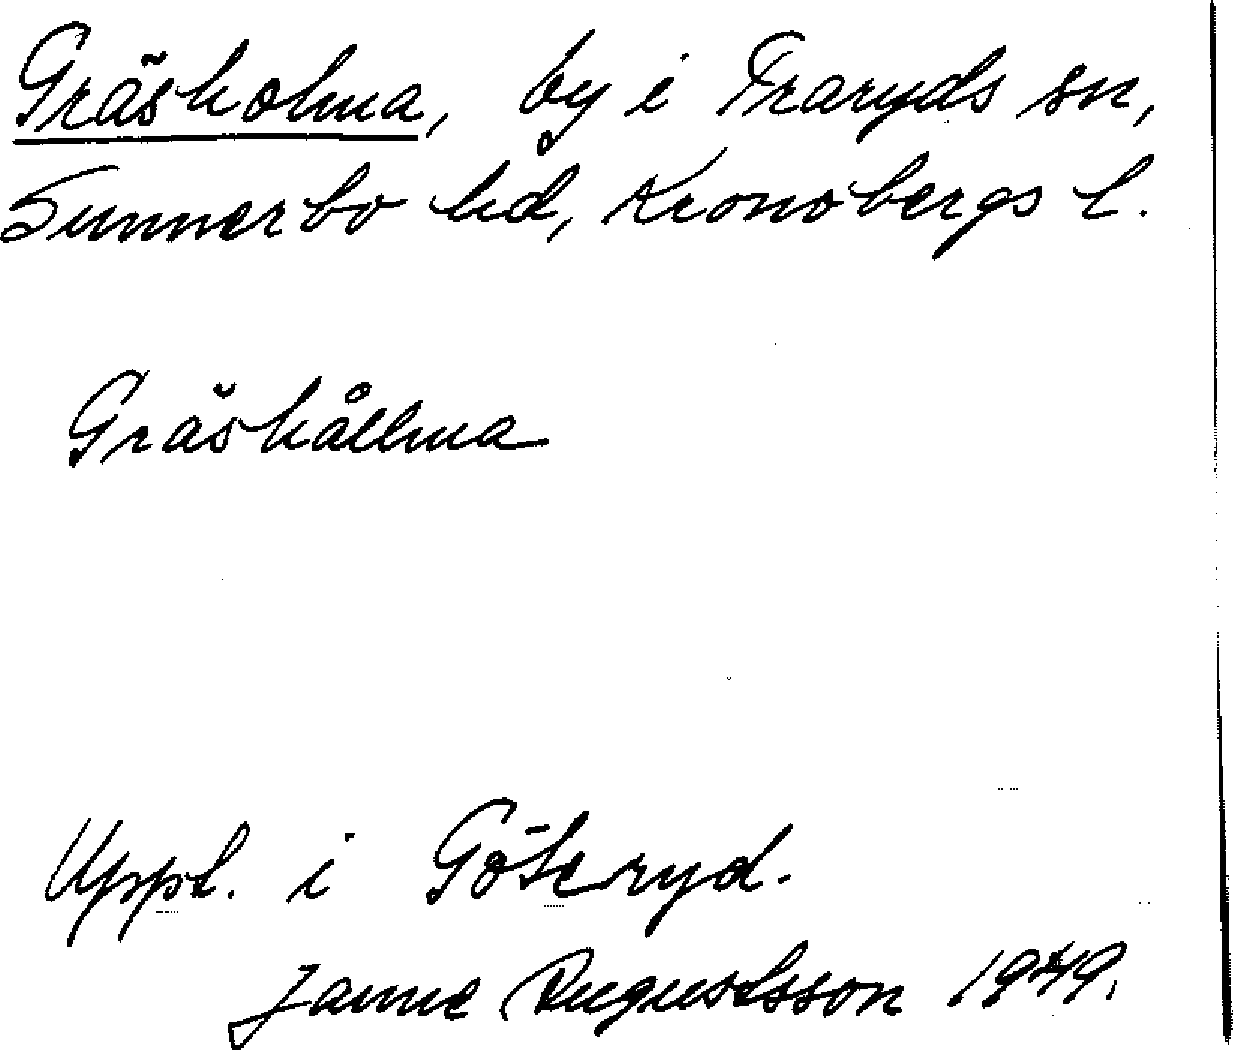 Gräsholma, by i Traryds sn,
Sunnerbo hd, Kronobergs l.
Gräshållma
Uppt. i Göteryd.
Janne Augustsson 1949.